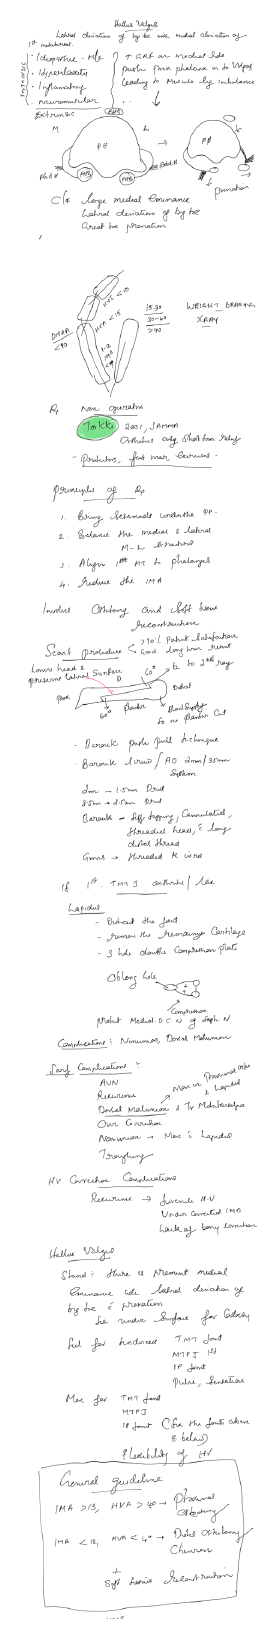 Hallux Valgus
Lateral deviation of big toe with medial deviation of
1st metatarsal.
INTRINSIC
- Idiopathic - M/c
- Hyperlaxity
- Inflammatory
- neuromuscular
↑ GRF on medial side
push prox phalanx in to Valgus
leading to Muscle lig imbalance
Extrinsic
M
L
PH
PH
Abd H
Add H
FHB
FHB
pronation
C/c large medial eminence
Lateral deviation of big toe
Great toe pronation
HVI < 10
HVA < 15
DMAA
< 10
1-2
IMA
< 9
15-30
30-40
> 40
WEIGHT BEARING
XRAY
Rx Non operative
Torkki 2001, JAMMA
Orthosis only short term relief
Principles of Rx
1. Bring sesamoids under the PP.
2. Balance the medial & lateral
M-L structures
3. Align 1st MT & phalanges
4. reduce the IMA
Involve Osteotomy and Soft tissue
reconstruction
Scarf procedure < >90% Patient Satisfaction
Good long term result
Lowers head &
preserve lateral Surface
D
60°
to 2nd ray
Prox
Distal
60°
Plantar
Blood Supply
So no plantar Cut
- Barouk push pull technique
- Barouk Screw / AO 2mm/35mm
System
2mm → 1.5mm Drill
3.5mm → 2.5mm Drill
Barouk - Self tapping, Cannulated,
threaded head, c long
distal thread
Gmns → threaded K wire
If 1st TMTJ arthritis / lax
Lapidus
- Distract the joint
- remove the remaining Cartilage
- 3 hole double Compression plate
Oblong hole
Compression
Protect Medial D C N of Soph. N
Complications: Nonunion, Dorsal Malunion
Scarf Complications:
AVN
Recurrence
Dorsal malunion & Tr Metatarsalgia
More in Proximal Osteo
& Lapidus
Over Correction
Nonunion → More in Lapidus
Troughing
HV Correction Complications
Recurrence → Juvenile H.V
Under corrected IMA
Lack of bony correction
Hallux Valgus
Stand: there is prominent medial
eminence with lateral deviation of
big toe c pronation
See under Surface for Callosity
Feel for tenderness TMT joint
MTPJ 1st
IP joint
Pulse, Sensation
Move for TMT joint
MTPJ
IP joint (fix the joints above
& below)
Flexibility of HV
General guideline
IMA >13, HVA > 40 → Proximal
Osteotomy
IMA < 13, HVA < 4° → Distal Osteotomy
Chevron
+
Soft tissue reconstruction